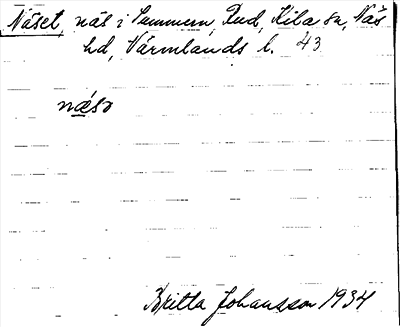 Näset, näs i Summern, Rud, Kila sn, Näs
hd, Värmlands l. 43
næ´sə
Britta Johansson 1934